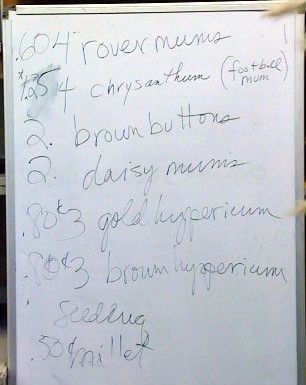 .60 4 rover mums
1.25 4 chrysanthum (football mum)
2. brown buttons
2. daisy mums
.80¢ 3 gold hypericum
.80¢ 3 brown hypericum
.50¢ millet